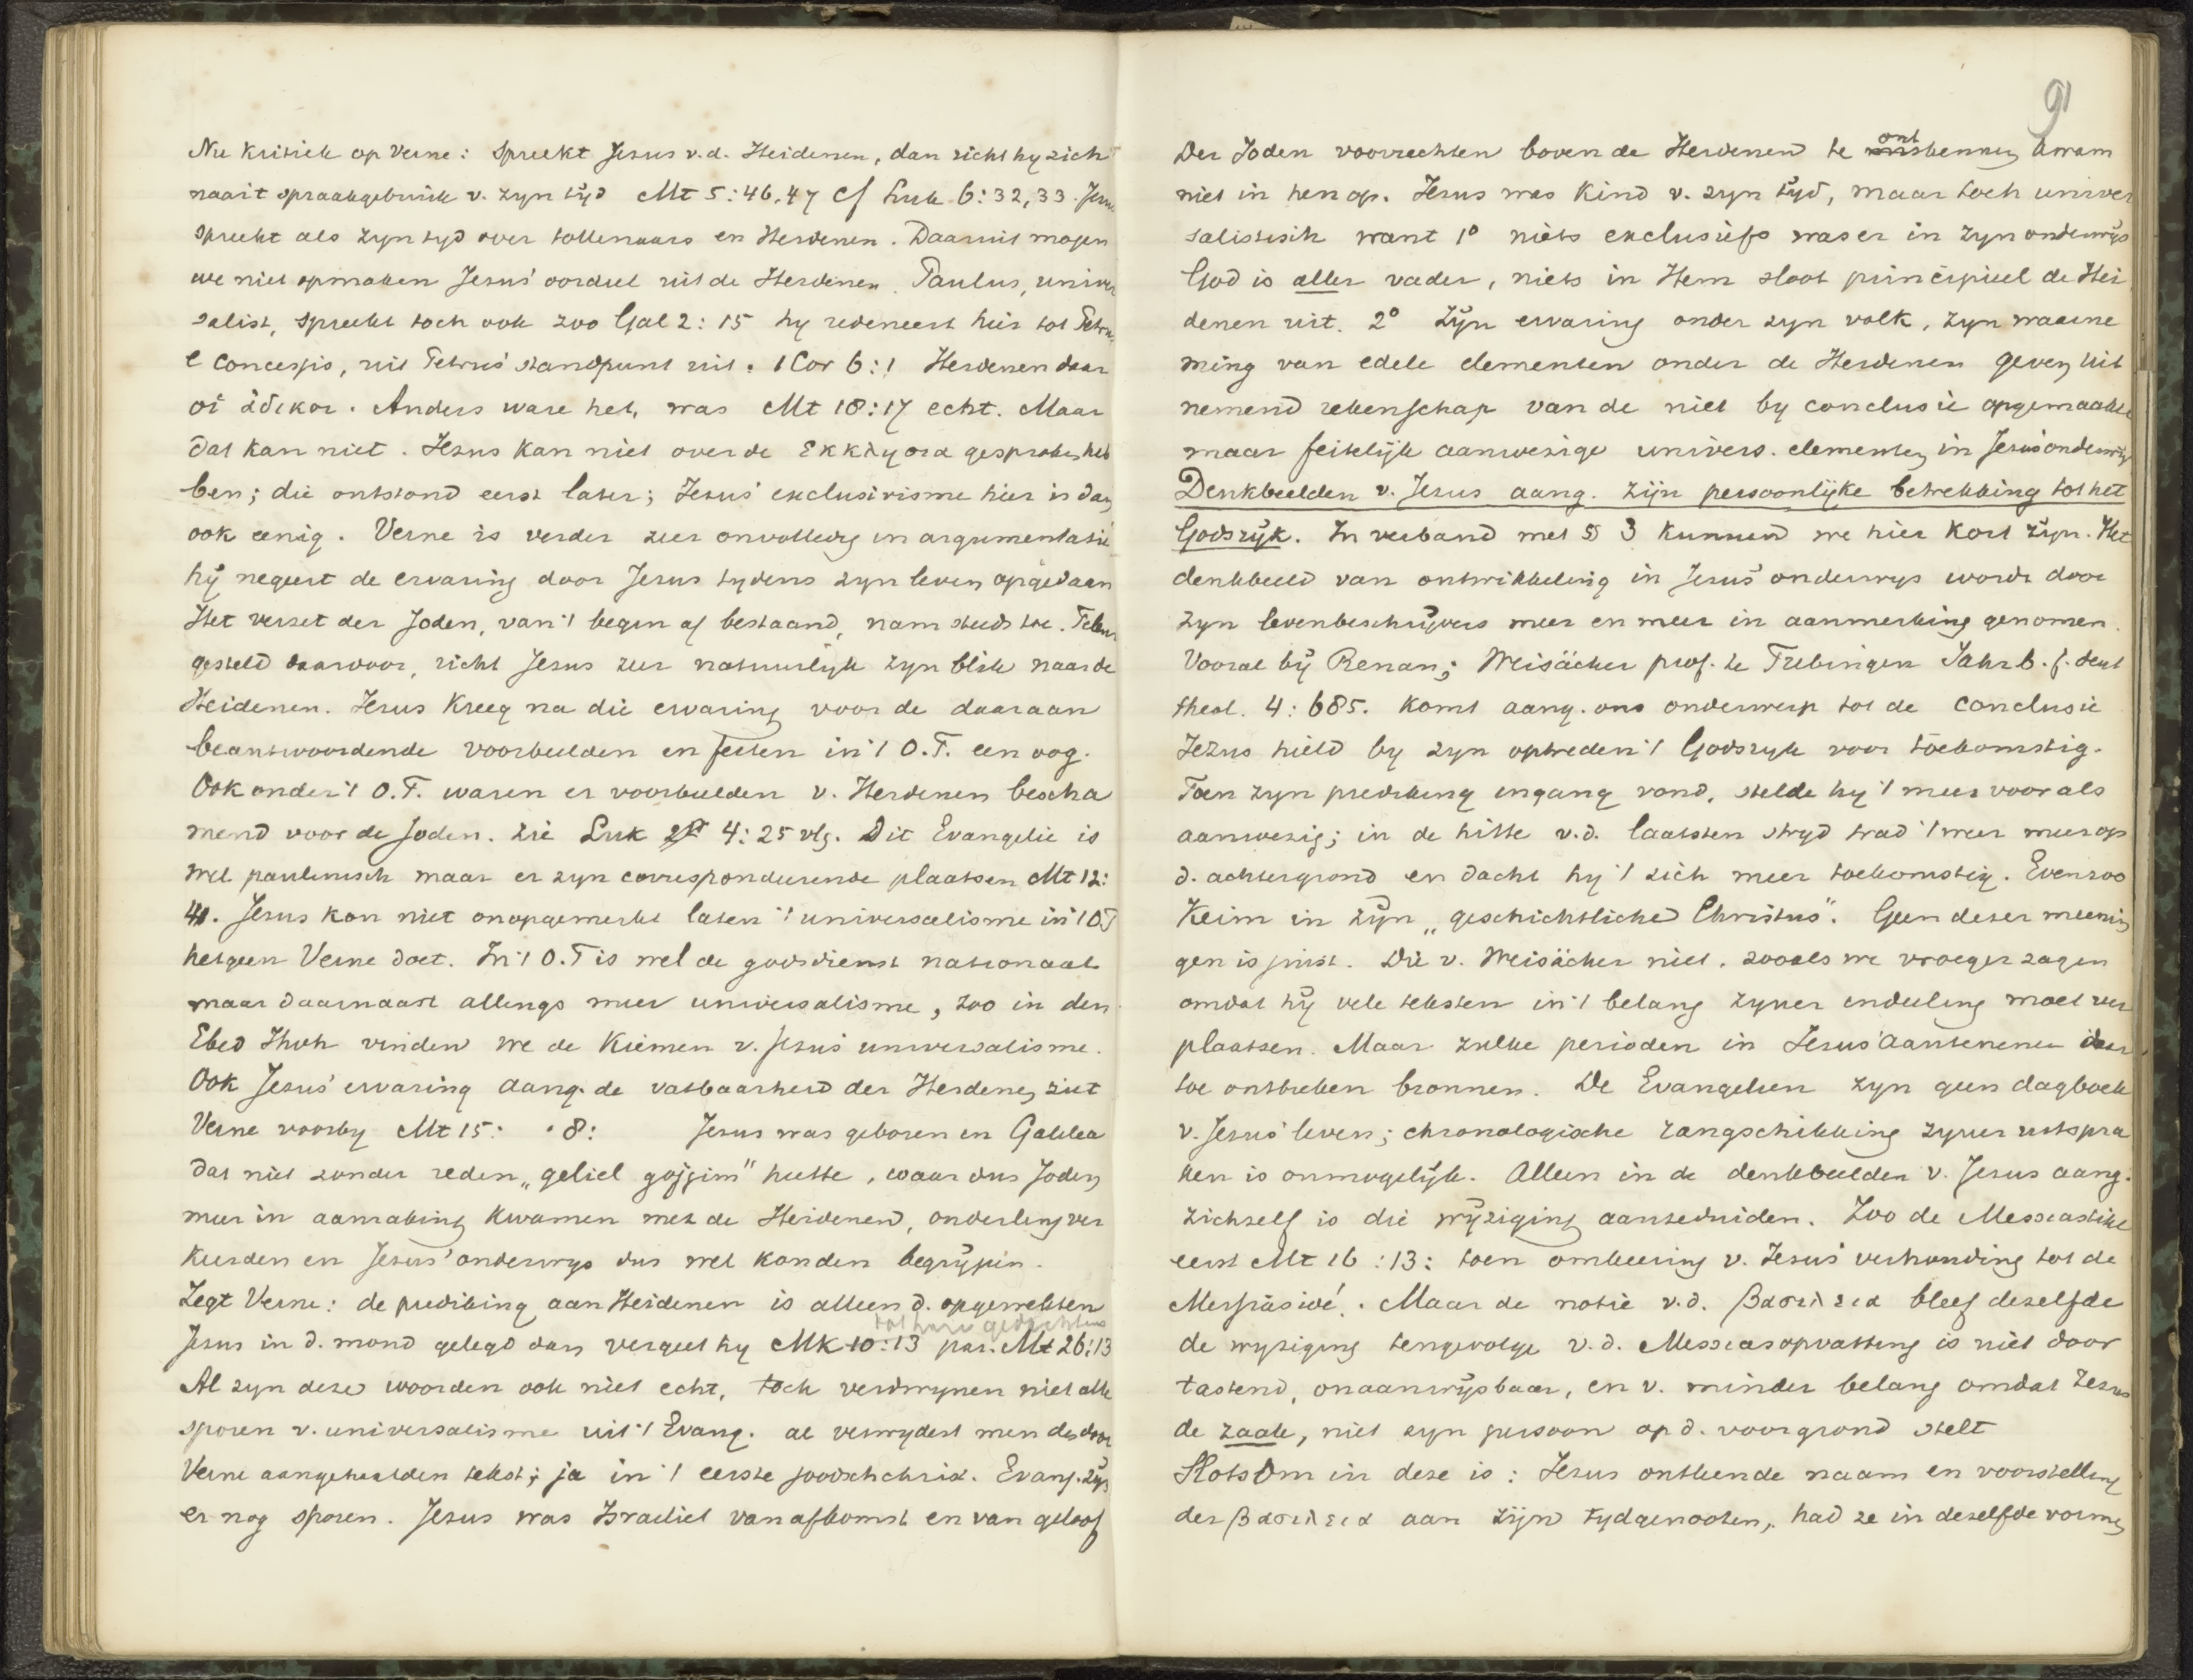 Nu kritiek op Verne: Spreekt Jezus v.d. Heidenen, dan richt hy zich
naar 't spraakgebruik v. zyn tijd Mt 5:46,47 cf Luk 6:32,33. Jezus
spreekt als zyn tyd over tollenaars en Heidenen. Daaruit mogen
we niet opmaken Jezus' oordeel uit de Heidenen. Paulus, univer
salist, spreekt toch ook zoo Gal 2:15 hy redeneert hier tot Petrus
e concessis, uit Petrus' standpunt uit. 1 Cor 6:1 Heidenen daar
οἱ ἄδικοι. Anders ware het, was Mt 18:17 echt. Maar
dat kan niet. Jezus kan niet over de εκκλησια gesproken heb
ben; die ontstond eerst later; Jezus' exclusivisme hier is dan
ook eenig. Verne is verder zeer onvolledig in argumentatie
hij negeert de ervaring door Jezus tydens zyn leven opgedaan
Het verzet der Joden, van 't begin af bestaand, nam steeds toe. Teleur
gesteld daarvoor, richt Jezus zeer natuurlyk zyn blik naar de
Heidenen. Jezus kreeg na die ervaring voor de daaraan
beantwoordende voorbeelden en feiten in 't O.T. een oog.
Ook onder 't O.T. waren er voorbeelden v. Heidenen bescha
mend voor de Joden. Zie Luk 4:25 vlg. Dit Evangelie is
wel paulinisch maar er zyn correspondeerende plaatsen Mt 12:
41. Jezus kon niet onopgemerkt laten 't universalisme in 't O.T
hetgeen Verne doet. In 't O.T is wel de godsdienst nationaal
maar daarnaast allengs meer universalisme, zoo in den
Ebed Jhvh vinden we de kiemen v. Jezus' universalisme.
Ook Jezus' ervaring aang. de vatbaarheid der Heidenen ziet
Verne voorby Mt 15: . 8: Jezus was geboren in Galilea
dat niet zonder reden „geliel gojjim" heette, waar dus Joden
meer in aanraking kwamen met de Heidenen, onderling ver
keerden en Jezus' onderwys dus wel konden begrypen.
Zegt Verne: de prediking aan Heidenen is alleen d. opgewekten
tot hare gedachtenis
Jezus in d. mond gelegd dan vergeet hy Mk 10:13 par. Mt 26:13
Al zyn deze woorden ook niet echt, toch verdwynen niet alle
sporen v. universalisme uit 't Evang. al verwydert men de door
Verne aangehaalden tekst; ja in 't eerste joodschchrist. Evang. zyn
er nog sporen. Jezus was Israeliet van afkomst en van geloof
91
Der Joden voorrechten boven de Heidenen te ontkennen kwam
niet in hen op. Jezus was kind v. zyn tijd, maar toch univer
salistisch want 1º niets exclusiefs was er in zyn onderwijs
God is aller vader, niets in Hem sloot principieel de Hei
denen uit. 2º Zijn ervaring onder zyn volk, zyn waarne
ming van edele elementen onder de Heidenen geven uit
nemend rekenschap van de niet by conclusie opgemaakte
maar feitelijk aanwezige univers. elementen in Jezus' onderwijs
Denkbeelden v. Jezus aang. zijn persoonlijke betrekking tot het
Godsrijk. In verband met § 3 kunnen we hier kort zijn. Het
denkbeeld van ontwikkeling in Jezus' onderwys wordt door
zyn levenbeschrijvers meer en meer in aanmerking genomen.
Vooral bij Renan; Weisäcker prof. te Tubingen Jahrb. f. deut
theol. 4:685. komt aang. ons onderwerp tot de conclusie
Jezus hield by zyn optreden 't Godsryk voor toekomstig.
Toen zyn prediking ingang vond, stelde hy 't meer voor als
aanwezig; in de hitte v.d. laatsten stryd trad 't weer meer op
d. achtergrond en dacht hy 't zich meer toekomstig. Evenzoo
Keim in zijn „geschichtliche Christus". Geen dezer meenin
gen is juist. Die v. Weisäcker niet, zooals we vroeger zagen
omdat hij vele teksten in 't belang zyner indeeling moet ver
plaatsen. Maar zulke perioden in Jezus' aantenemen daar
toe ontbreken bronnen. De Evangelien zyn geen dagboek
v. Jezus' leven; chronologische rangschikking zyner uitspra
ken is onmogelijk. Alleen in de denkbeelden v. Jezus aang.
zichzelf is die wijziging aanteduiden. Zoo de Messiastitel
eerst Mt 16:13: toen omkeering v. Jezus' verhouding tot de
Messiasidé. Maar de notie v.d. βασιλεια bleef dezelfde
de wyziging tengevolge v.d. Messiasopvatting is niet door
tastend, onaanwijsbaar, en v. minder belang omdat Jezus
de zaak, niet zyn persoon op d. voorgrond stelt
Slotsom in deze is: Jezus ontleende naam en voorstelling
der βασιλεια aan zijn tydgenooten, had ze in dezelfde vormen